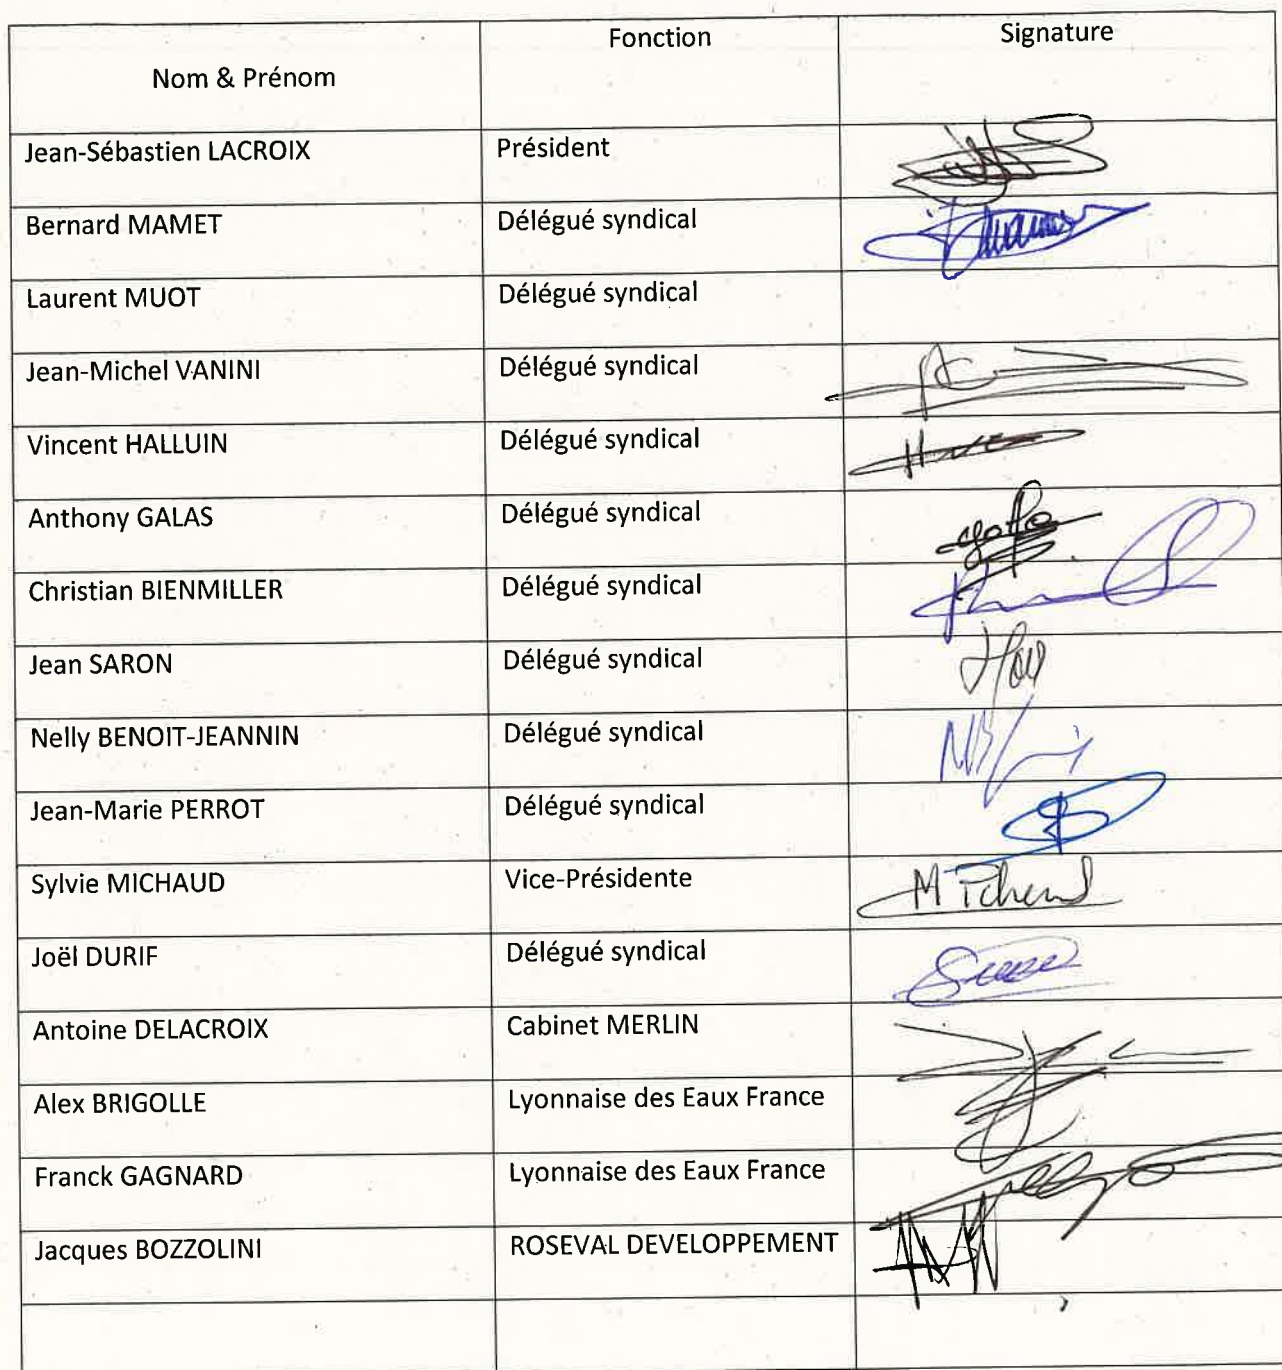 Nom & Prénom Fonction Signature
Jean-Sébastien LACROIX Président
Bernard MAMET Délégué syndical
Laurent MUOT Délégué syndical
Jean-Michel VANINI Délégué syndical
Vincent HALLUIN Délégué syndical
Anthony GALAS Délégué syndical
Christian BIENMILLER Délégué syndical
Jean SARON Délégué syndical
Nelly BENOIT-JEANNIN Délégué syndical
Jean-Marie PERROT Délégué syndical
Sylvie MICHAUD Vice-Présidente
Joël DURIF Délégué syndical
Antoine DELACROIX Cabinet MERLIN
Alex BRIGOLLE Lyonnaise des Eaux France
Franck GAGNARD Lyonnaise des Eaux France
Jacques BOZZOLINI ROSEVAL DEVELOPPEMENT